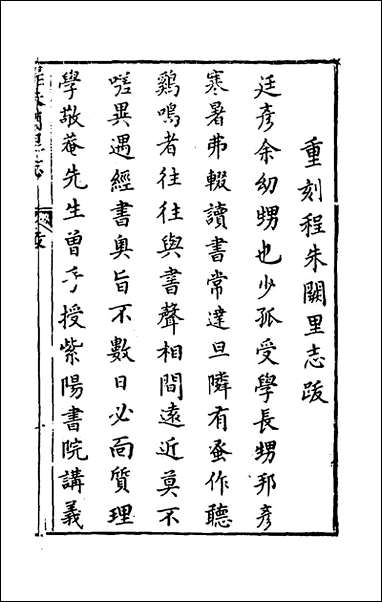 重刻程朱闕里志跋
廷彥余幼甥也少孤受學長甥邦彥
寒暑弗輟讀書常達旦隣有蚤作聽
鷄鳴者往往與書聲相間遠近莫不
嗟異遇經書奧旨不數日必面質理
學敬菴先生曾手授紫陽書院講義